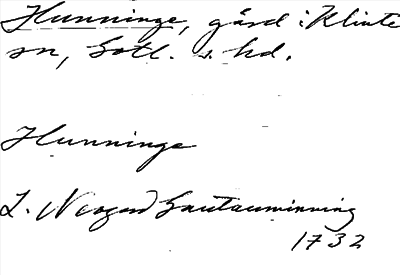 Hunninge, gård i Klinte
sn, Gotl. s. hd.
Hunninge
L. Gautauminning
1732